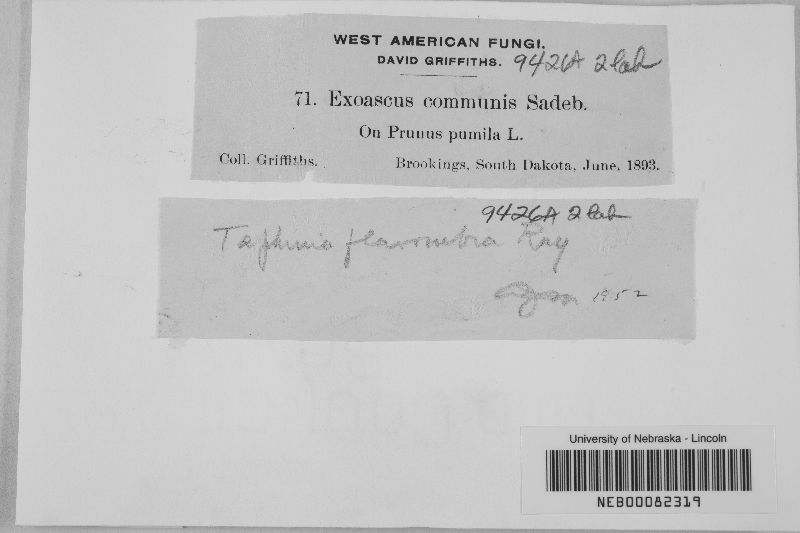 WEST AMERICAN FUNGI.
DAVID GRIFFITHS.
9426A 2 lab
71. Exoascus communis Sadeb.
On Prunus pumila L.
Coll. Griffiths. Brookings, South Dakota, June, 1893.
9426A 2 lab
Taphrina flavorubra Ray
1952
University of Nebraska - Lincoln
NEB00082319